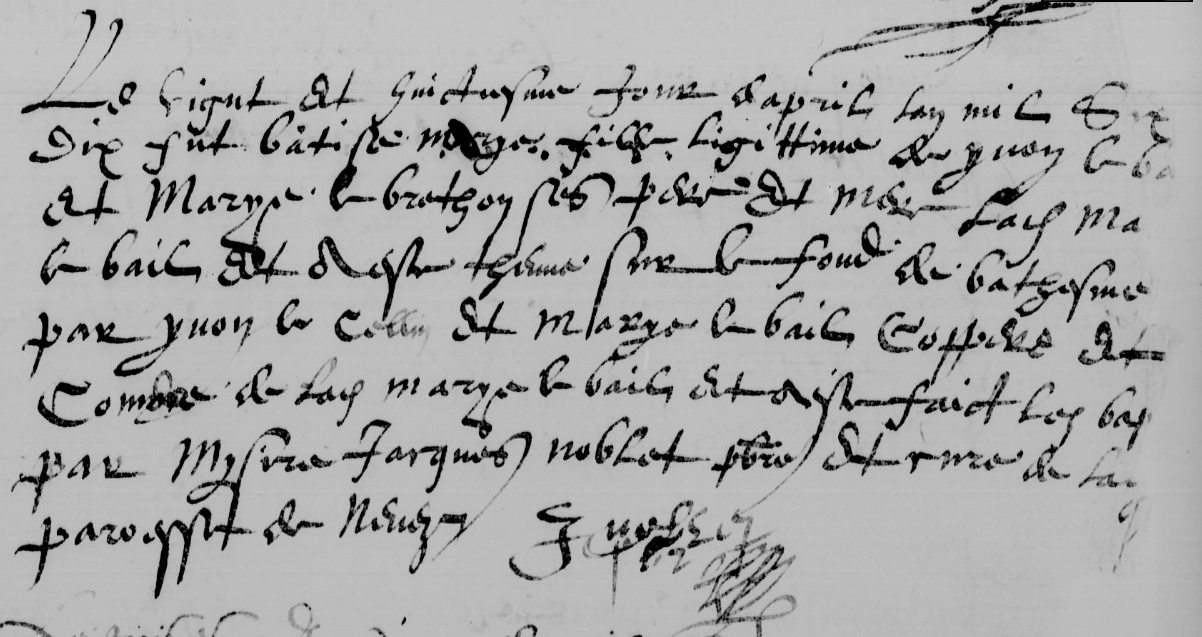 Le vignt et huictiesme Jour d'apvril lan mil Six
dix fut batise marye fille ligittime de yvon le ba
et Marye le brethon ses pere et mere lad Ma
le bail et a este thenue sur le fond de bathesme
par yvon le et Marye le bail Coppere et
Commere de lad marye le bail et a este faict led bap
par Mysire Jacques noblet pbre et cure de lad
paroesse de Nevez J noblet
pbr